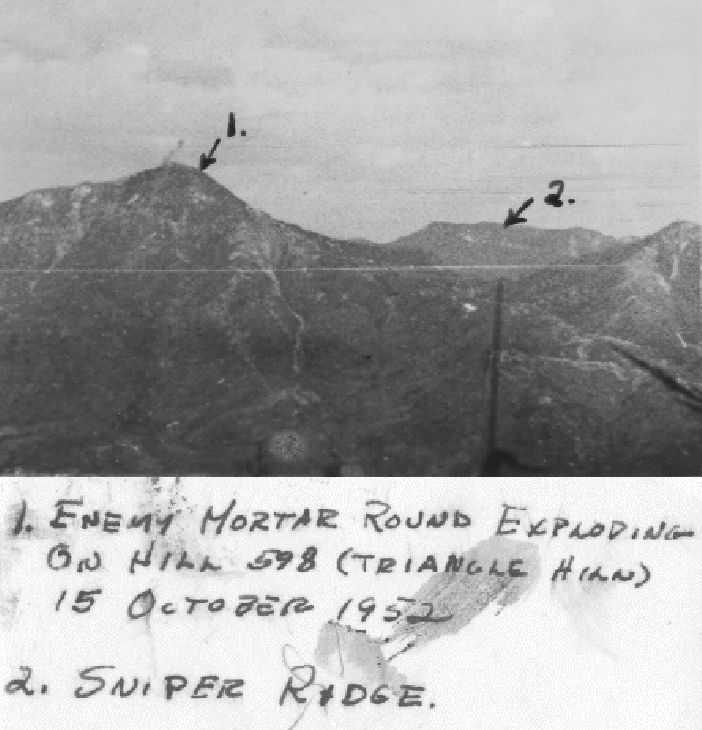 1.
2.
1. ENEMY MORTAR ROUND EXPLODING
ON HILL 598 (TRIANGLE HILL)
15 OCTOBER 1952
2. SNIPER RIDGE.